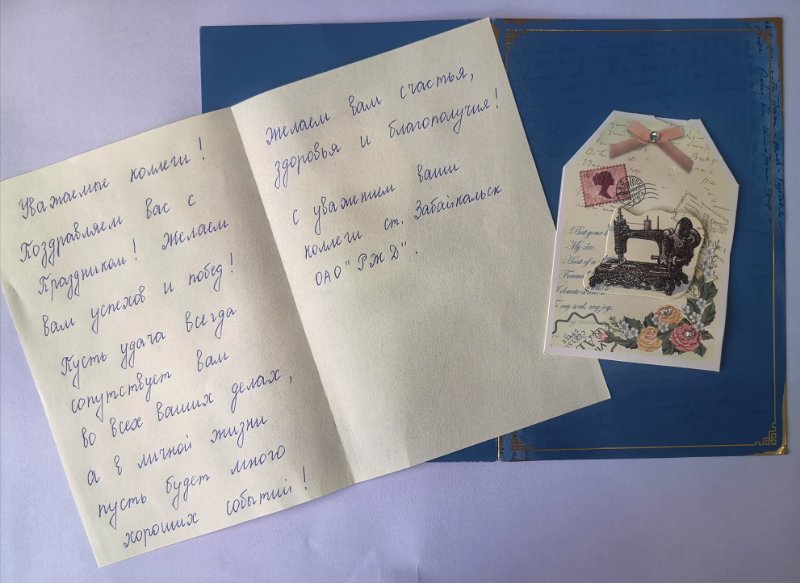 Уважаемые коллеги!
Поздравляем вас с
Праздником! Желаем
вам успехов и побед!
Пусть удача всегда
сопутствует вам
во всех ваших делах,
а в личной жизни
пусть будет много
хороших событий!
Желаем вам счастья,
здоровья и благополучия!
С уважением ваши
коллеги ст. Забайкальск
ОАО "РЖД".
But your
My
Forever
my joy.